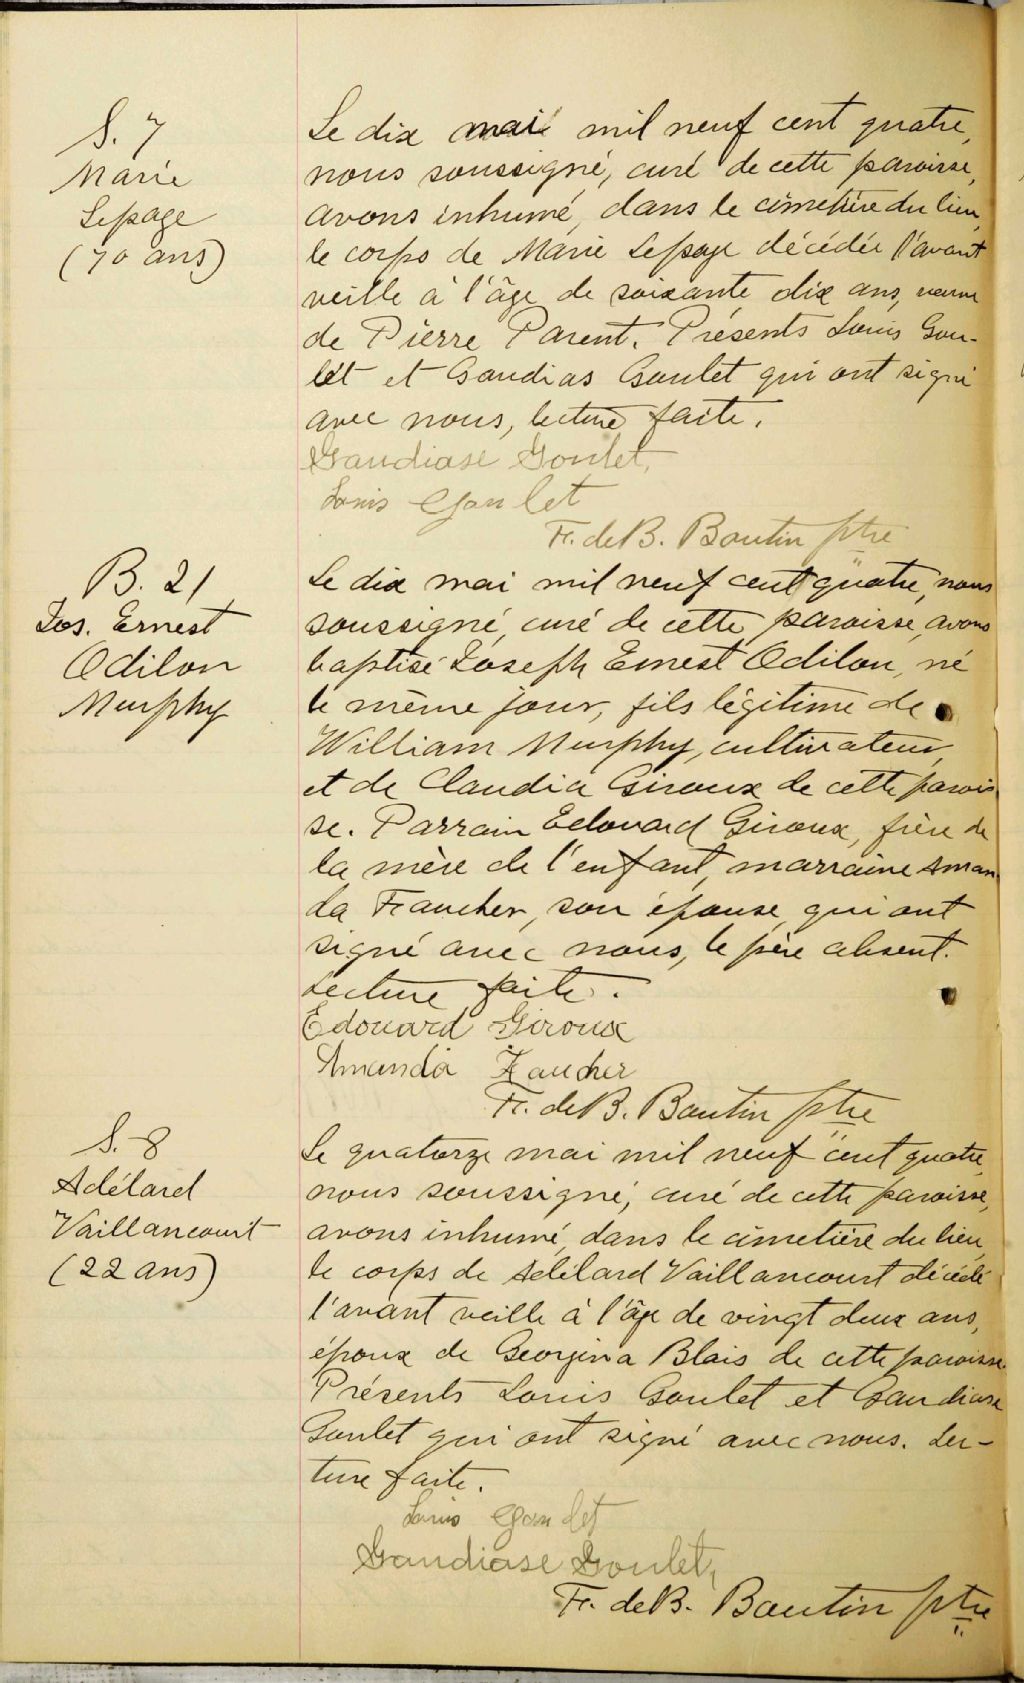 S. 7
Marie
Lepage
(70 ans)
Le dix mai mil neuf cent quatre,
nous soussigné, curé de cette paroisse,
avons inhumé, dans le cimetière du lieu,
le corps de Marie Lepage décédée l'avant
veille à l'âge de soixante dix ans, veuve
de Pierre Parent. Présents Louis Gou-
let et Gaudias Goulet qui ont signé
avec nous, lecture faite.
Gaudiase Goulet,
Louis Goulet
F. de B. Boutin ptre
B. 21
Jos. Ernest
Odilon
Murphy
Le dix mai mil neuf cent quatre, nous
soussigné, curé de cette paroisse, avons
baptisé Joseph Ernest Odilon, né
le même jour, fils légitime de
William Murphy, cultivateur,
et de Claudia Giroux de cette parois
se. Parrain Edouard Giroux, frère de
la mère de l'enfant, marraine Aman
da Faucher, son épouse, qui ont
signé avec nous, le père absent.
Lecture faite.
Edouard Giroux
Amanda Faucher
F. de B. Boutin ptre
S. 8
Adélard
Vaillancourt
(22 ans)
Le quatorze mai mil neuf cent quatre,
nous soussigné, curé de cette paroisse,
avons inhumé, dans le cimetière du lieu,
le corps de Adélard Vaillancourt décédé
l'avant veille à l'âge de vingt deux ans,
époux de Georgina Blais de cette paroisse.
Présents Louis Goulet et Gaudiase
Goulet qui ont signé avec nous. Lec-
ture faite.
Louis Goulet
Gaudiase Goulet,
F. de B. Boutin ptre